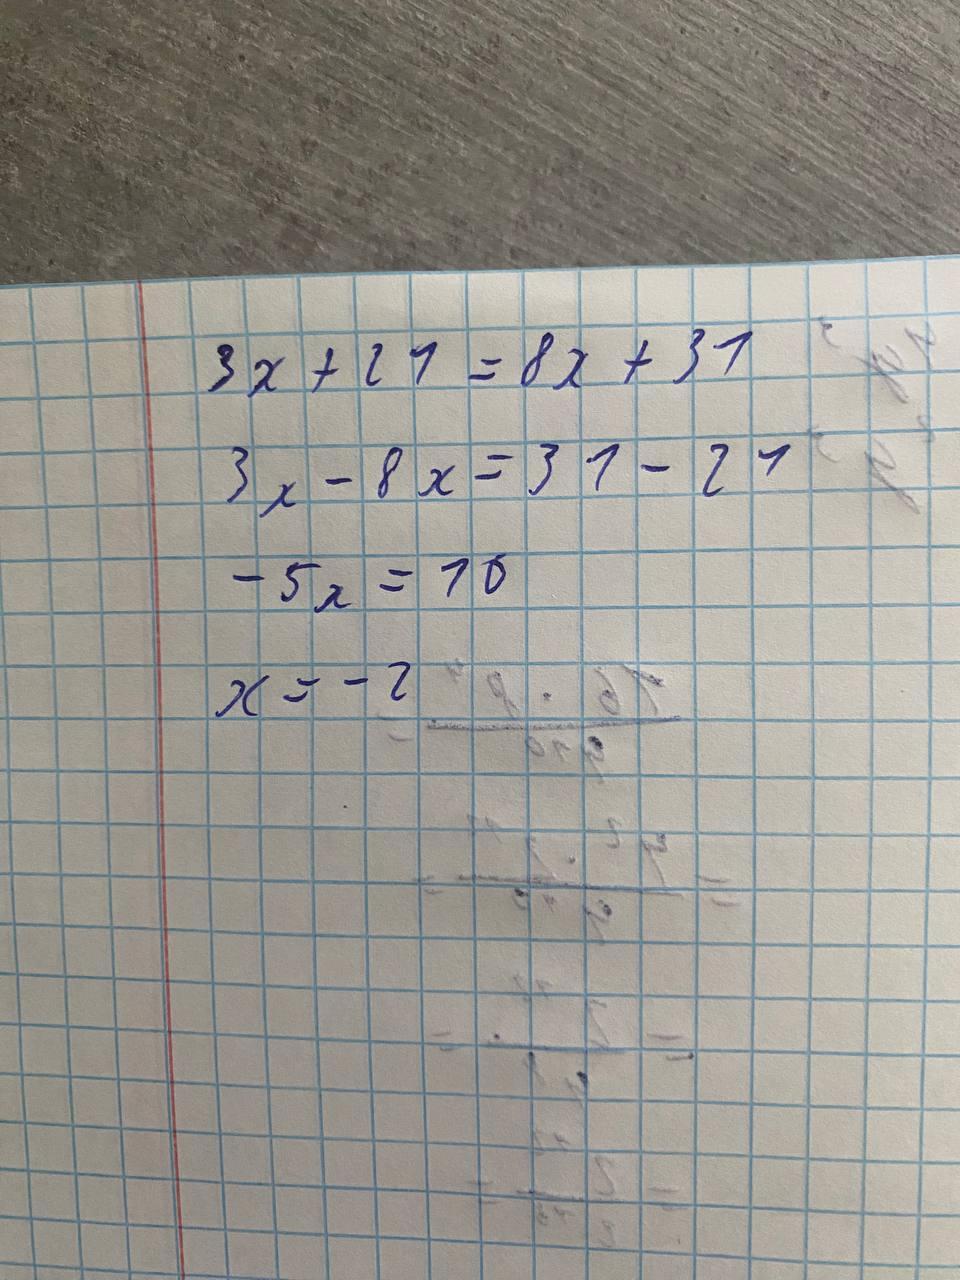 3x + 21 = 8x + 31
3x - 8x = 31 - 21
-5x = 10
x = -2